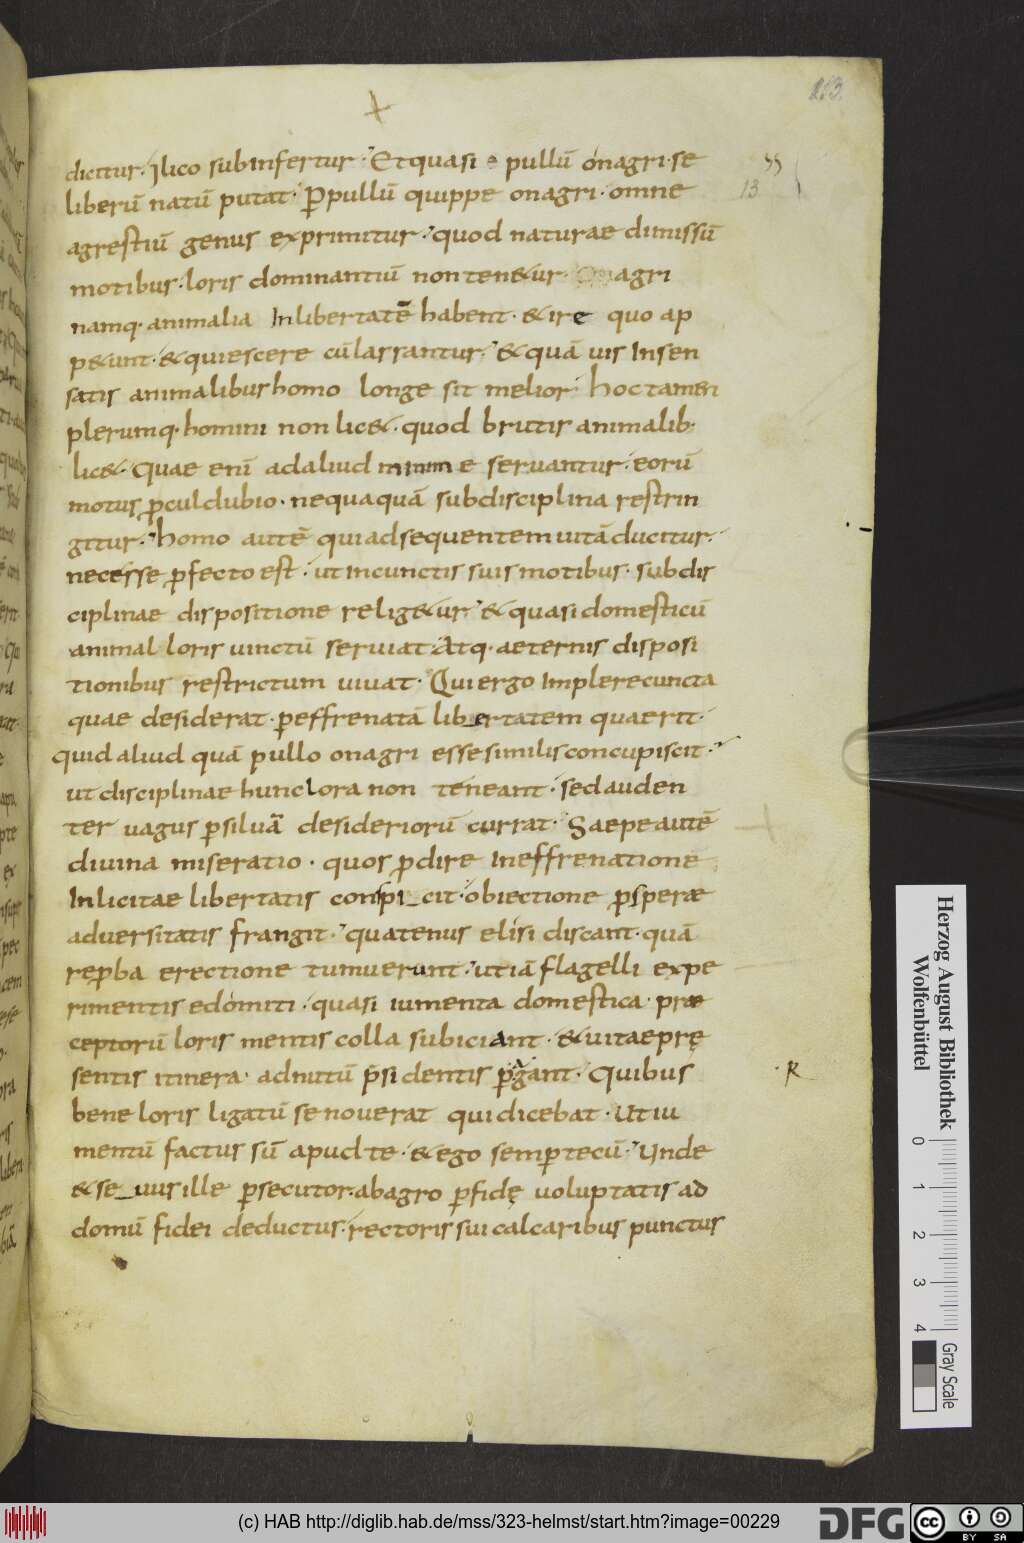 213
dicitur. Ilico subinfertur. Et quasi pullū onagri. se
13
liberū natū putat. P pullū quippe onagri. omne
agrestiū genus exprimitur. quod naturae dimissū
motibus. loris dominantiū non ten&ur. Onagri
namq. animalia In libertatē habent. & ire quo ap
p&unt. & quiescere cū lassantur. & quā uis Insen
satis animalibus homo longe sit melior. hoc tamen
plerumq. homini non lic&. quod brutis animalib.
lic&. Quae enī ad aliud minime seruantur. eorū
motus pculdubio. nequaquā sub disciplina restrin
gitur. homo autē qui ad sequentem uitā ducitur.
necesse pfecto est. ut in cunctis suis motibus. sub dis
ciplinae dispositione relig&ur. & quasi domesticū
animal loris uinctū seruiat. Atq. aeternis disposi
tionibus restrictum uiuat. Qui ergo implere cuncta
quae desiderat. p effrenatā libertatem quaerit.
quid aliud quā pullo onagri esse similis concupiscit.
ut disciplinae hunc lora non teneant. sed auden
ter uagus p siluā desideriorū currat. Saepe autē
diuina miseratio. quos pdire In effrenatione
Inlicitae libertatis conspicit. obiectione psperae
aduersitatis frangit. quatenus elisi discant. quā
repba erectione tumuerunt. ut iā flagelli expe
rimentis edomiti. quasi iumenta domestica. prae
ceptorū loris mentis colla subiciant. & uitae prę
sentis itinera. ad nutū psidentis pgant. Quibus
R
bene loris ligatū se nouerat qui dicebat. Ut iu
mentū factus sū apud te. & ego semp tecū. Unde
& seuus ille psecutor. ab agro pfidę uoluptatis ad
domū fidei deductus. rectoris sui calcaribus punctus
Herzog August Bibliothek
Wolfenbüttel
0 1 2 3 4
Gray Scale
(c) HAB http://diglib.hab.de/mss/323-helmst/start.htm?image=00229
DFG
cc BY SA